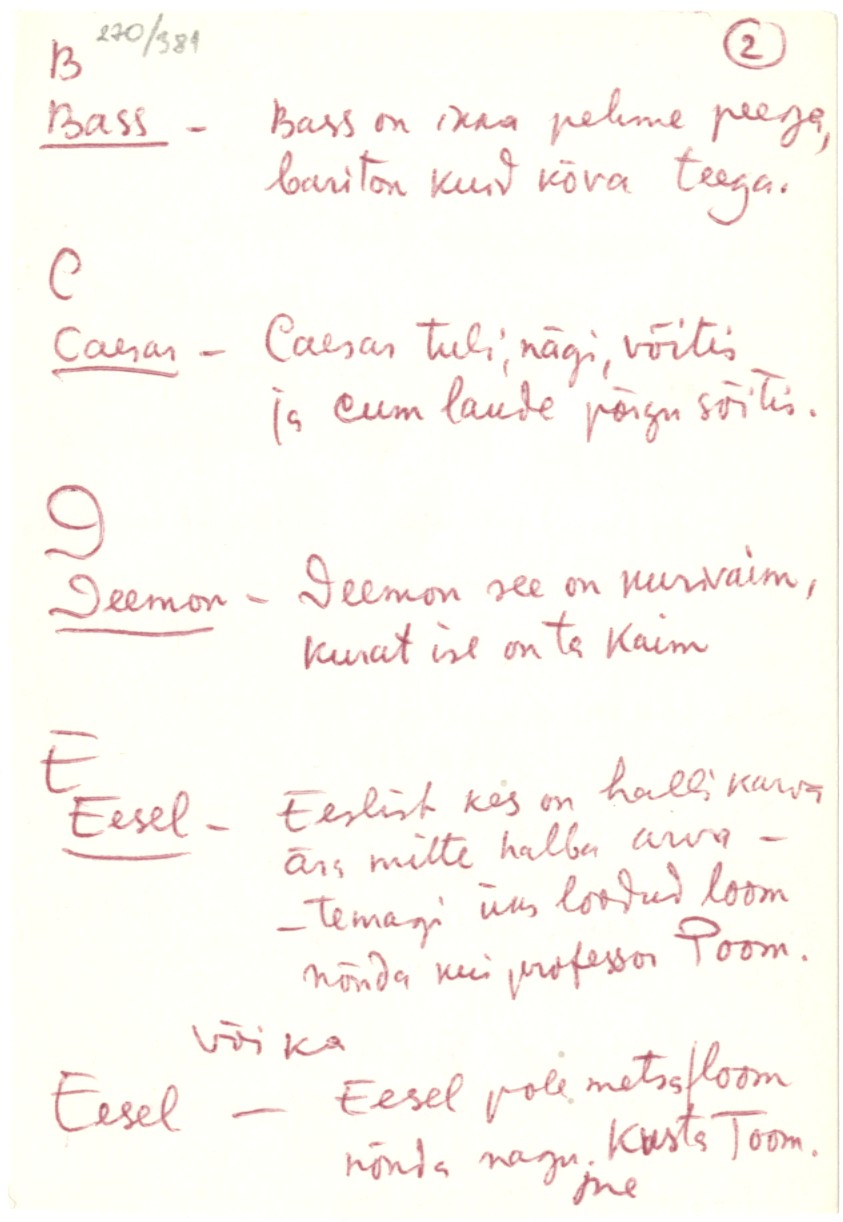 270/381
2
B
Bass - Bass on ikka pehme peega,
bariton kuid kõva teega.
C
Caesar - Caesar tuli, nägi, võitis
ja cum laude põrgu sõitis.
D
Deemon - Deemon see on kurivaim,
kurat ise on ta kaim
E
Eesel - Eeslist kes on halli karva
ära mitte halba arva -
- temagi üks loodud loom
nõnda kui professor Toom.
või ka
Eesel - Eesel pole metsa/loom
nõnda nagu Kusta Toom.
jne